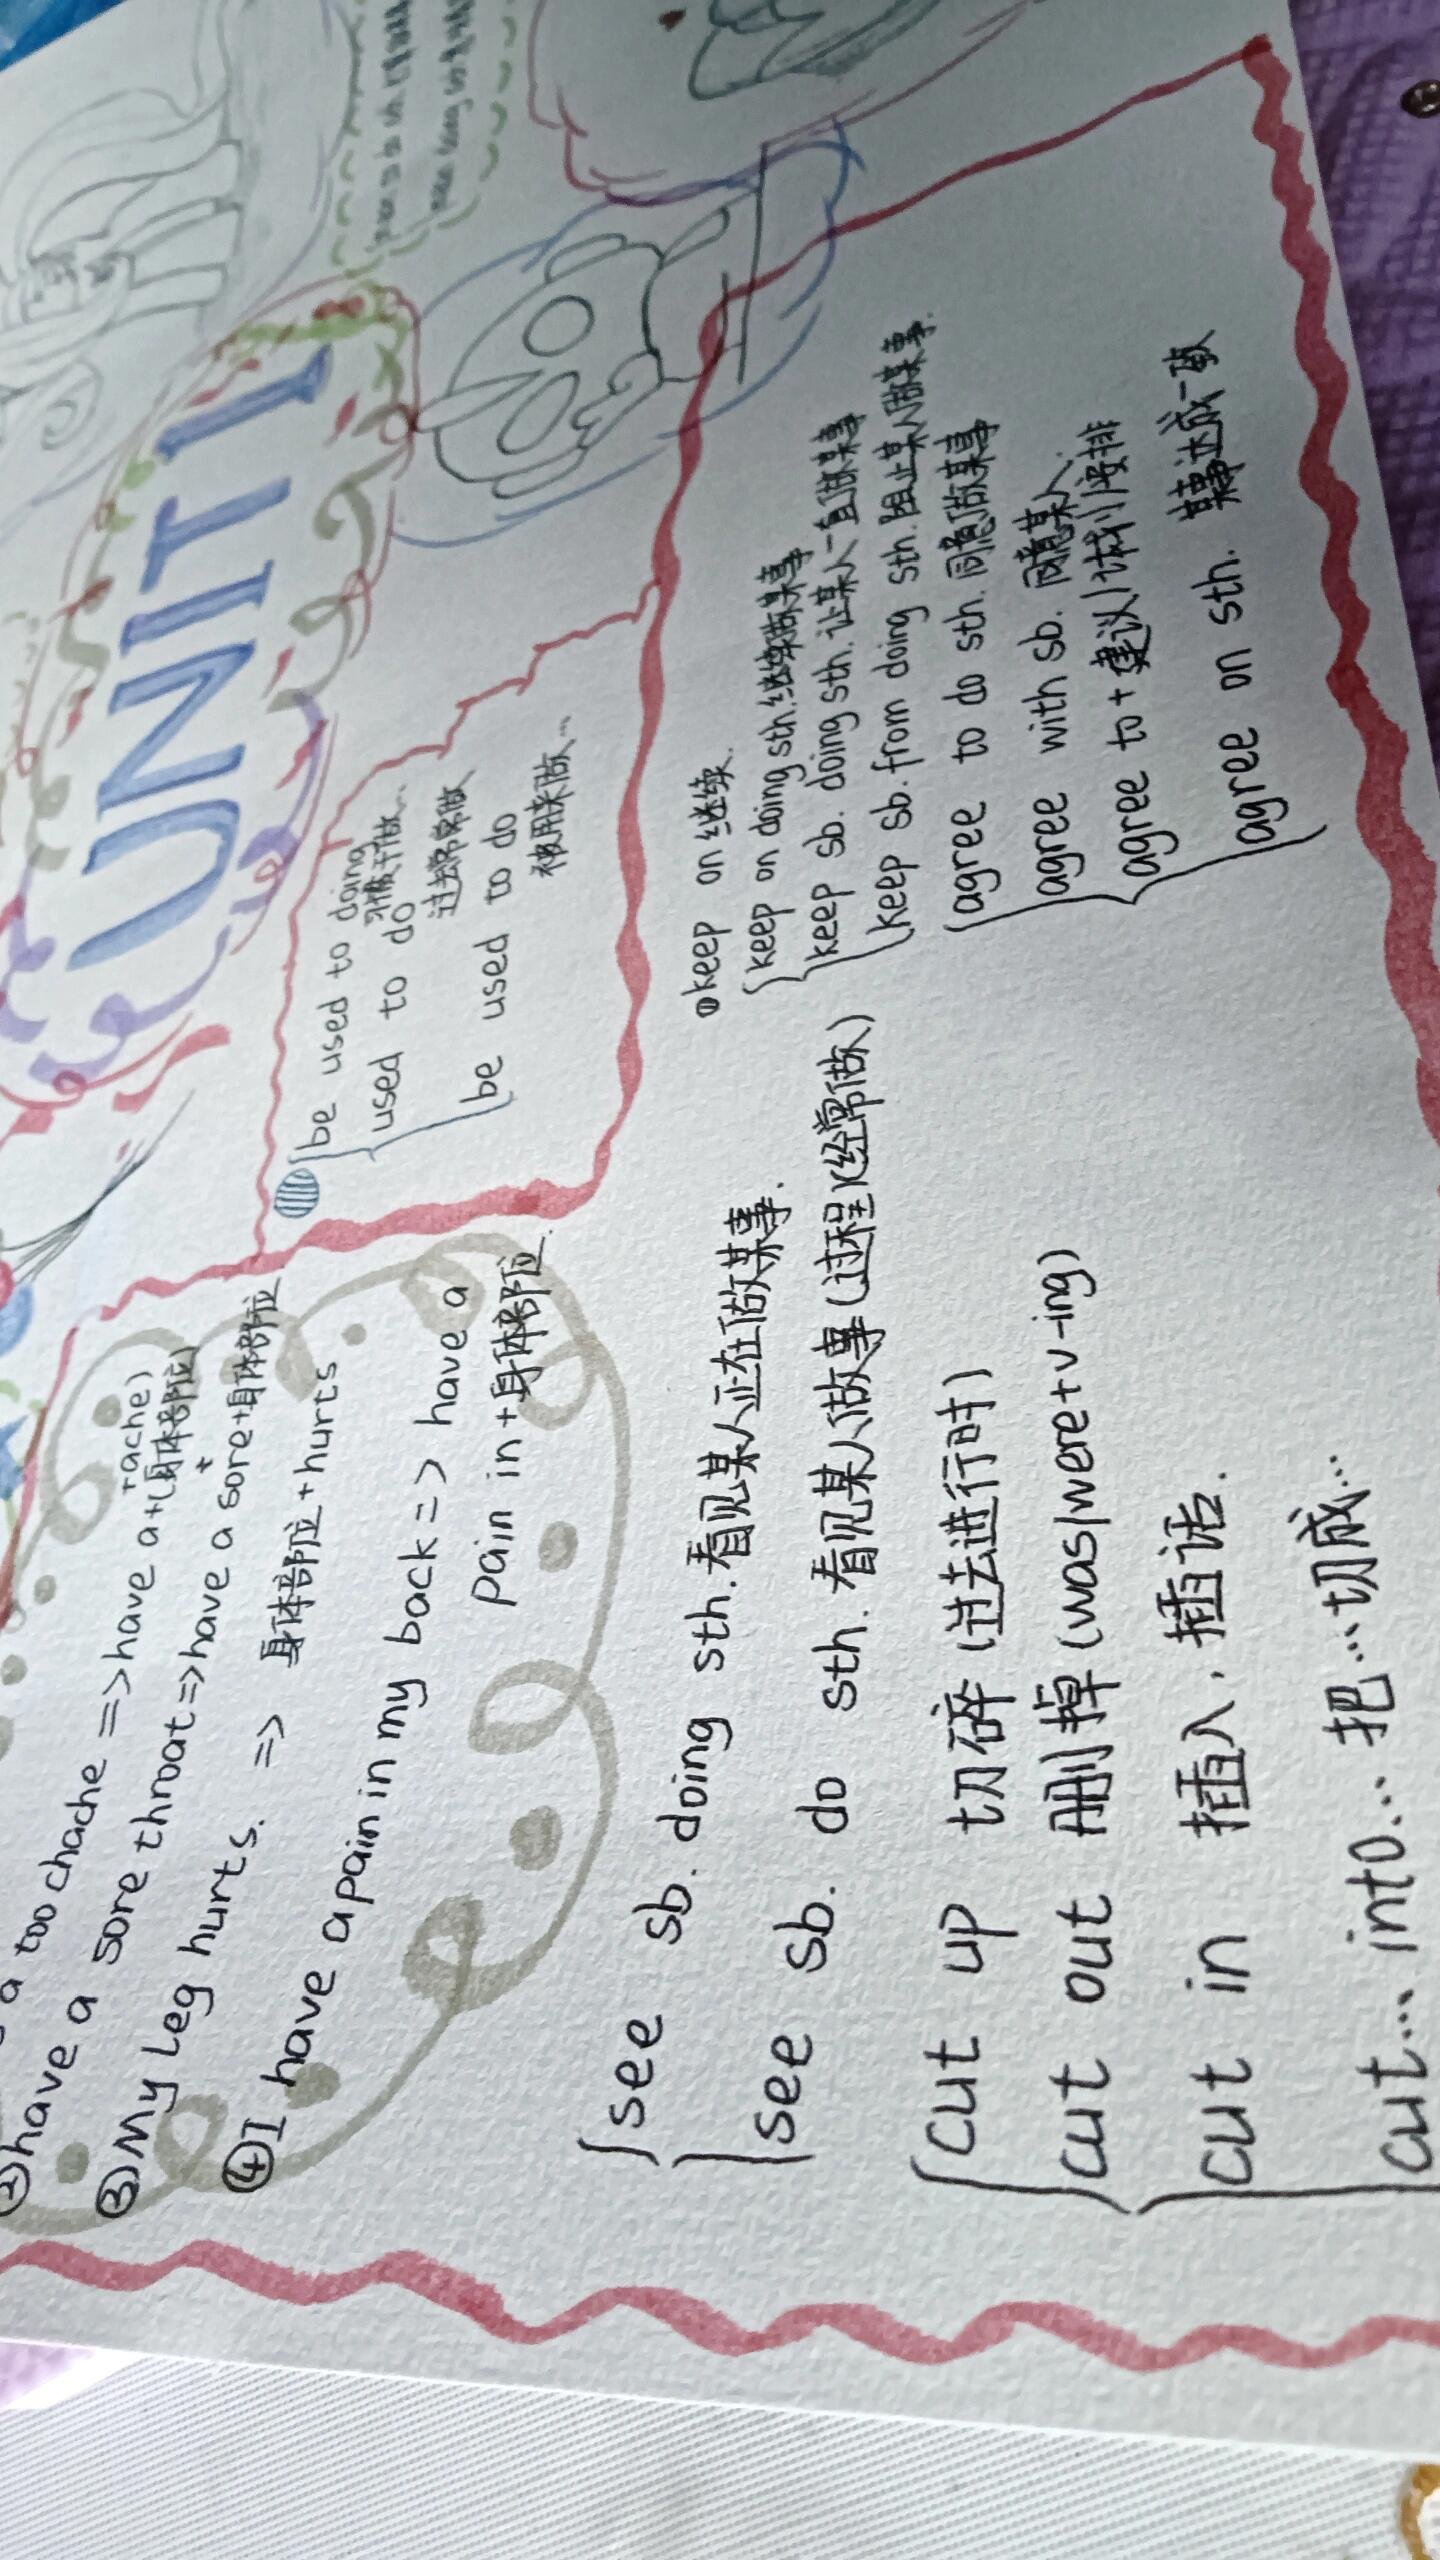 UNIT 1
a toochache => have a+(身体部位)+ache)
②have a sore throat => have a sore+身体部位
③My leg hurts. => 身体部位+hurts
④I have a pain in my back => have a
pain in+身体部位.
be used to doing
习惯于做...
used to do
过去常常做
be used to do
被用来做...
see sb. doing sth.看见某人正在做某事.
see sb. do sth.看见某人做事(过程)(经常做)
cut up 切碎(过去进行时)
cut out 删掉(was/were+v-ing)
cut in 插入,插话.
cut... into... 把...切成...
keep on 继续.
keep on doing sth.继续做某事
keep sb. doing sth.让某人一直做某事
keep sb. from doing sth.阻止某人做某事.
agree to do sth.同意做某事
agree with sb.同意某人.
agree to+建议/计划/安排
agree on sth. 某事达成一致